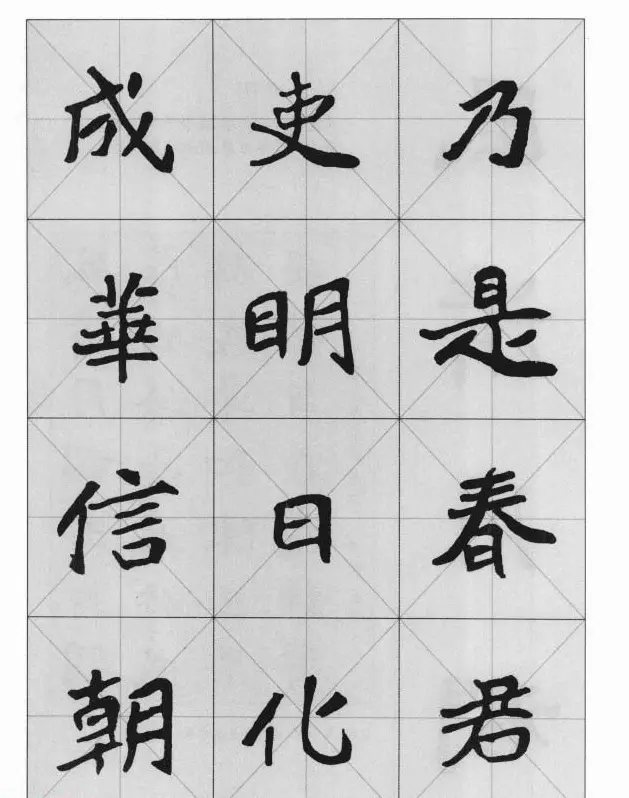 乃是春君
吏明日化
成華信朝